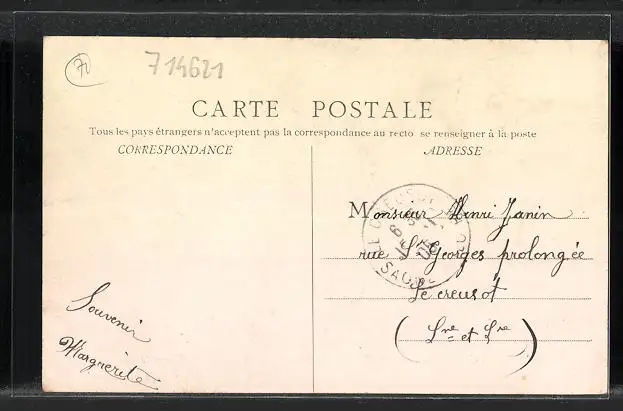 71
714621
CARTE POSTALE
Tous les pays étrangers n'acceptent pas la correspondance au recto se renseigner à la poste
CORRESPONDANCE
ADRESSE
Monsieur Henri Janin
rue St Georges prolongée
Le creusot
(Sne et Lre)
Souvenir
Marguerite
LE CREUSOT